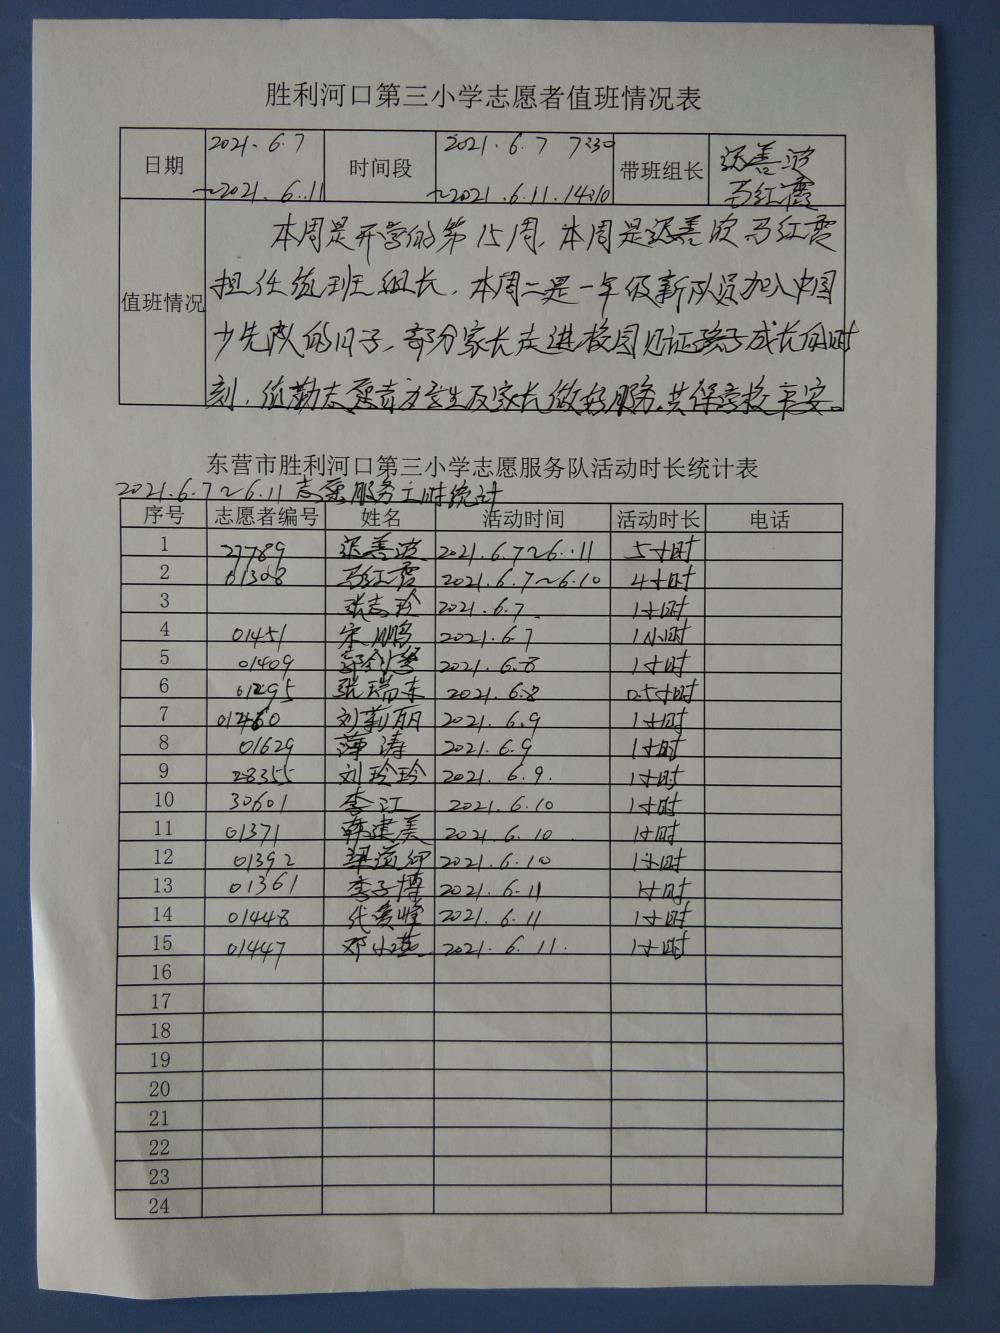 胜利河口第三小学志愿者值班情况表
日期 2021.6.7 ~2021.6.11 时间段 2021.6.7 7:30 ~2021.6.11.14:10 带班组长 迟善波 马红霞
值班情况
本周是开学的第15周,本周是迟善波马红霞
担任值班组长,本周二是一年级新队员加入中国
少先队的日子,部分家长走进校园见证孩子成长的时
刻,值勤志愿者为学生及家长做好服务,共保学校平安。
东营市胜利河口第三小学志愿服务队活动时长统计表
2021.6.7~6.11志愿服务工时统计
序号 志愿者编号 姓名 活动时间 活动时长 电话
1 27789 迟善波 2021.6.7~6.11 5小时
2 01308 马红霞 2021.6.7~6.10 4小时
3 张志玲 2021.6.7 1小时
4 01451 宋鹏 2021.6.7 1小时
5 01409 2021.6.8 1小时
6 01295 张瑞东 2021.6.8 0.5小时
7 01460 刘莉丽 2021.6.9 1小时
8 01629 薄涛 2021.6.9 1小时
9 28355 刘玲玲 2021.6.9. 1小时
10 30601 李江 2021.6.10 1小时
11 01371 韩建美 2021.6.10 1小时
12 01392 2021.6.10 1小时
13 01361 李子博 2021.6.11 1小时
14 01448 2021.6.11 1小时
15 01447 邓小燕 2021.6.11. 1小时
16
17
18
19
20
21
22
23
24